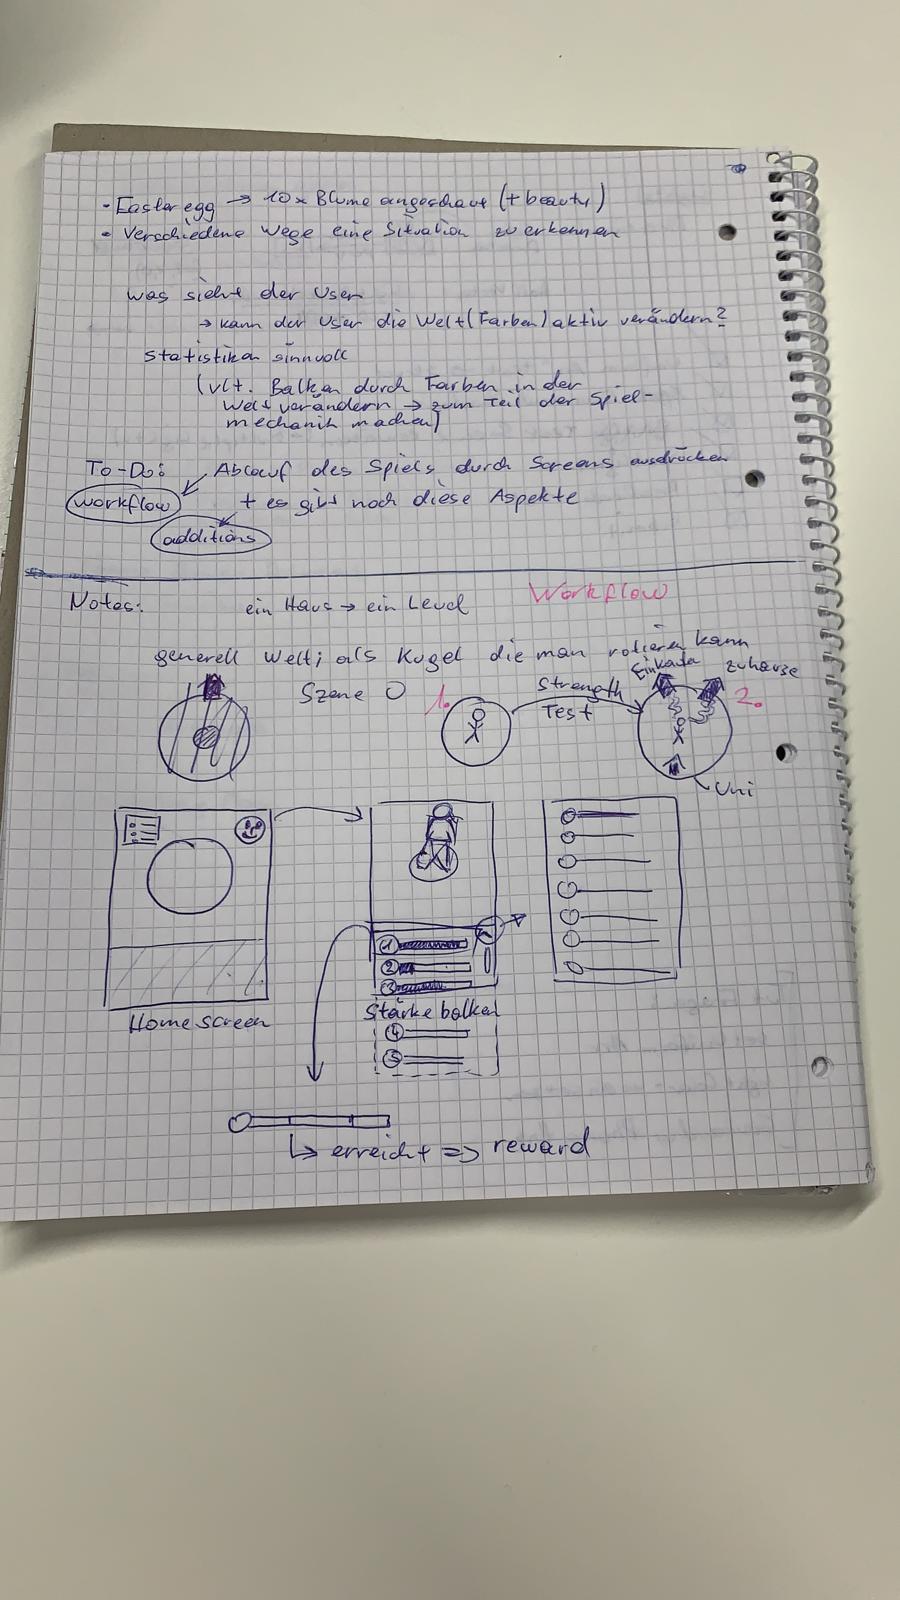 • Easter egg → 10x Blume angeschaut (+ beauty)
• Verschiedene Wege eine Situation zu erkennen
was sieht der User
→ kann der User die Welt (Farben) aktiv verändern?
Statistiken sinnvoll
(vlt. Balken durch Farben in der
Welt verändern → zum Teil der Spiel-
mechanik machen)
To-Do: Ablauf des Spiels durch Screens ausdrücken
workflow + es gibt noch diese Aspekte
additions
Notes: ein Haus → ein Level Workflow
generell Welt; als Kugel die man rotieren kann
Szene 0 1. Strength Test Einkaufen zuhause 2.
Uni
1
2
3
Homescreen Stärke balken
4
5
↳ erreicht => reward